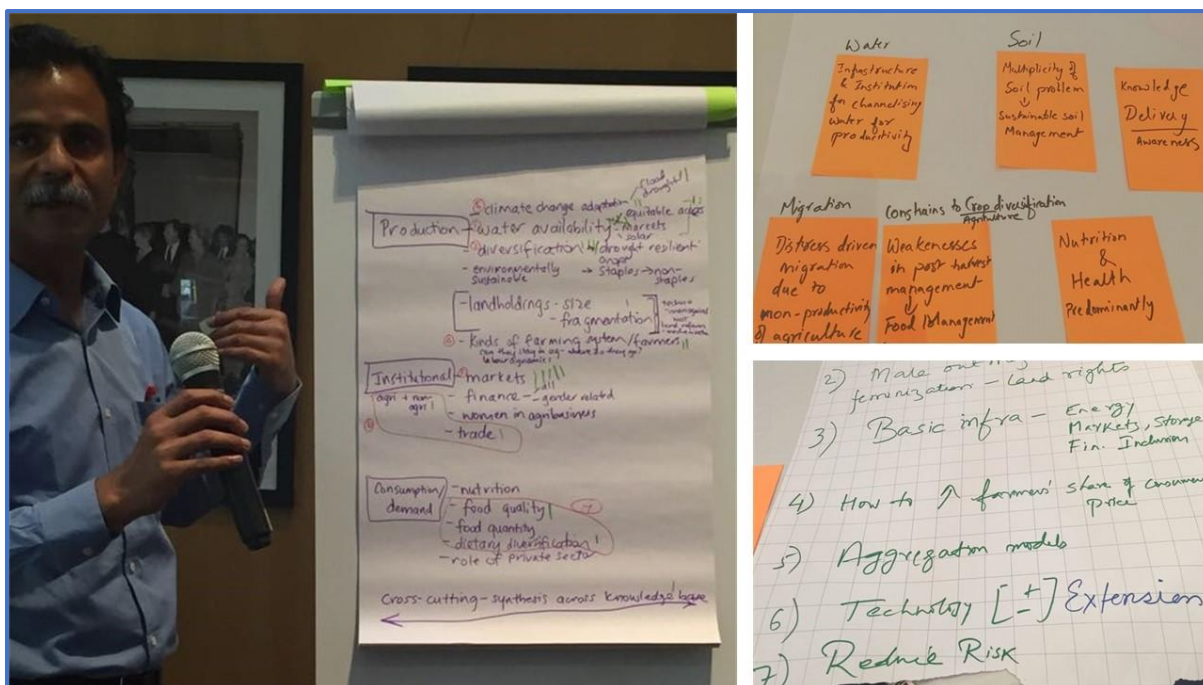 flood
drought
climate change adaptation
Production
water availability
equitable access
markets
solar
diversification
drought resilient
environmentally sustainable
→ staples → non-staples
landholdings - size
- fragmentation
- kinds of farming system/farmers
Institutional
- markets
agri + non-agri
- finance - gender related
- women in agribusiness
- trade
Consumption/
demand
- nutrition
- food quality
- food quantity
- dietary diversification
- role of private sector
cross-cutting - synthesis across knowledge base
Water
Infrastructure
& Institution
for channelising
water for
productivity
Soil
Multiplicity of
Soil problem
↓
Sustainable soil
Management
Knowledge
Delivery
Awareness
Migration
Distress driven
migration
due to
non-productivity
of agriculture
Constrains to Crop diversification
Agriculture
Weaknesses
in post harvest
management
↓
Food Management
Nutrition
&
Health
Predominantly
2) Male
feminization - land rights
3) Basic infra - Energy
Markets, storage
Fin. Inclusion
4) How to ↑ farmers' share of consumer
price
5) Aggregation models
6) Technology [+ -] Extension
7) Reduce Risk